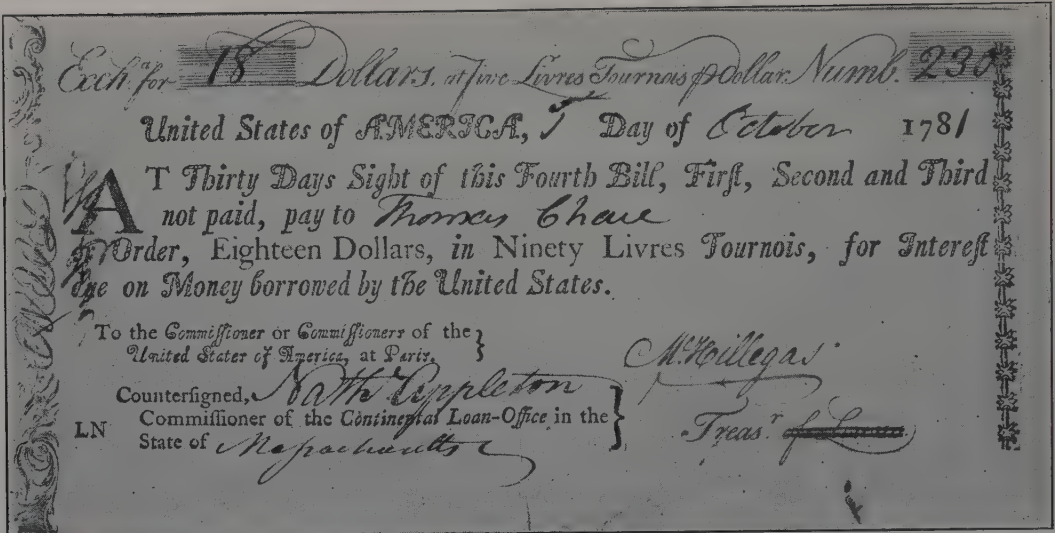 Exchª. for 18 Dollars. at five Livres Tournois ⅌ Dollar. Numb. 230
United States of AMERICA, 5 Day of October 1781
AT Thirty Days Sight of this Fourth Bill, Firſt, Second and Third
not paid, pay to Thomas Chase
or Order, Eighteen Dollars, in Ninety Livres Tournois, for Intereſt
due on Money borrowed by the United States.
To the Commiſſioner or Commiſſioners of the
United States of America, at Paris.
M. Hillegas
Counterſigned, Nathl Appleton
Commiſſioner of the Continental Loan-Office in the
Treasr
LN State of Massachusetts